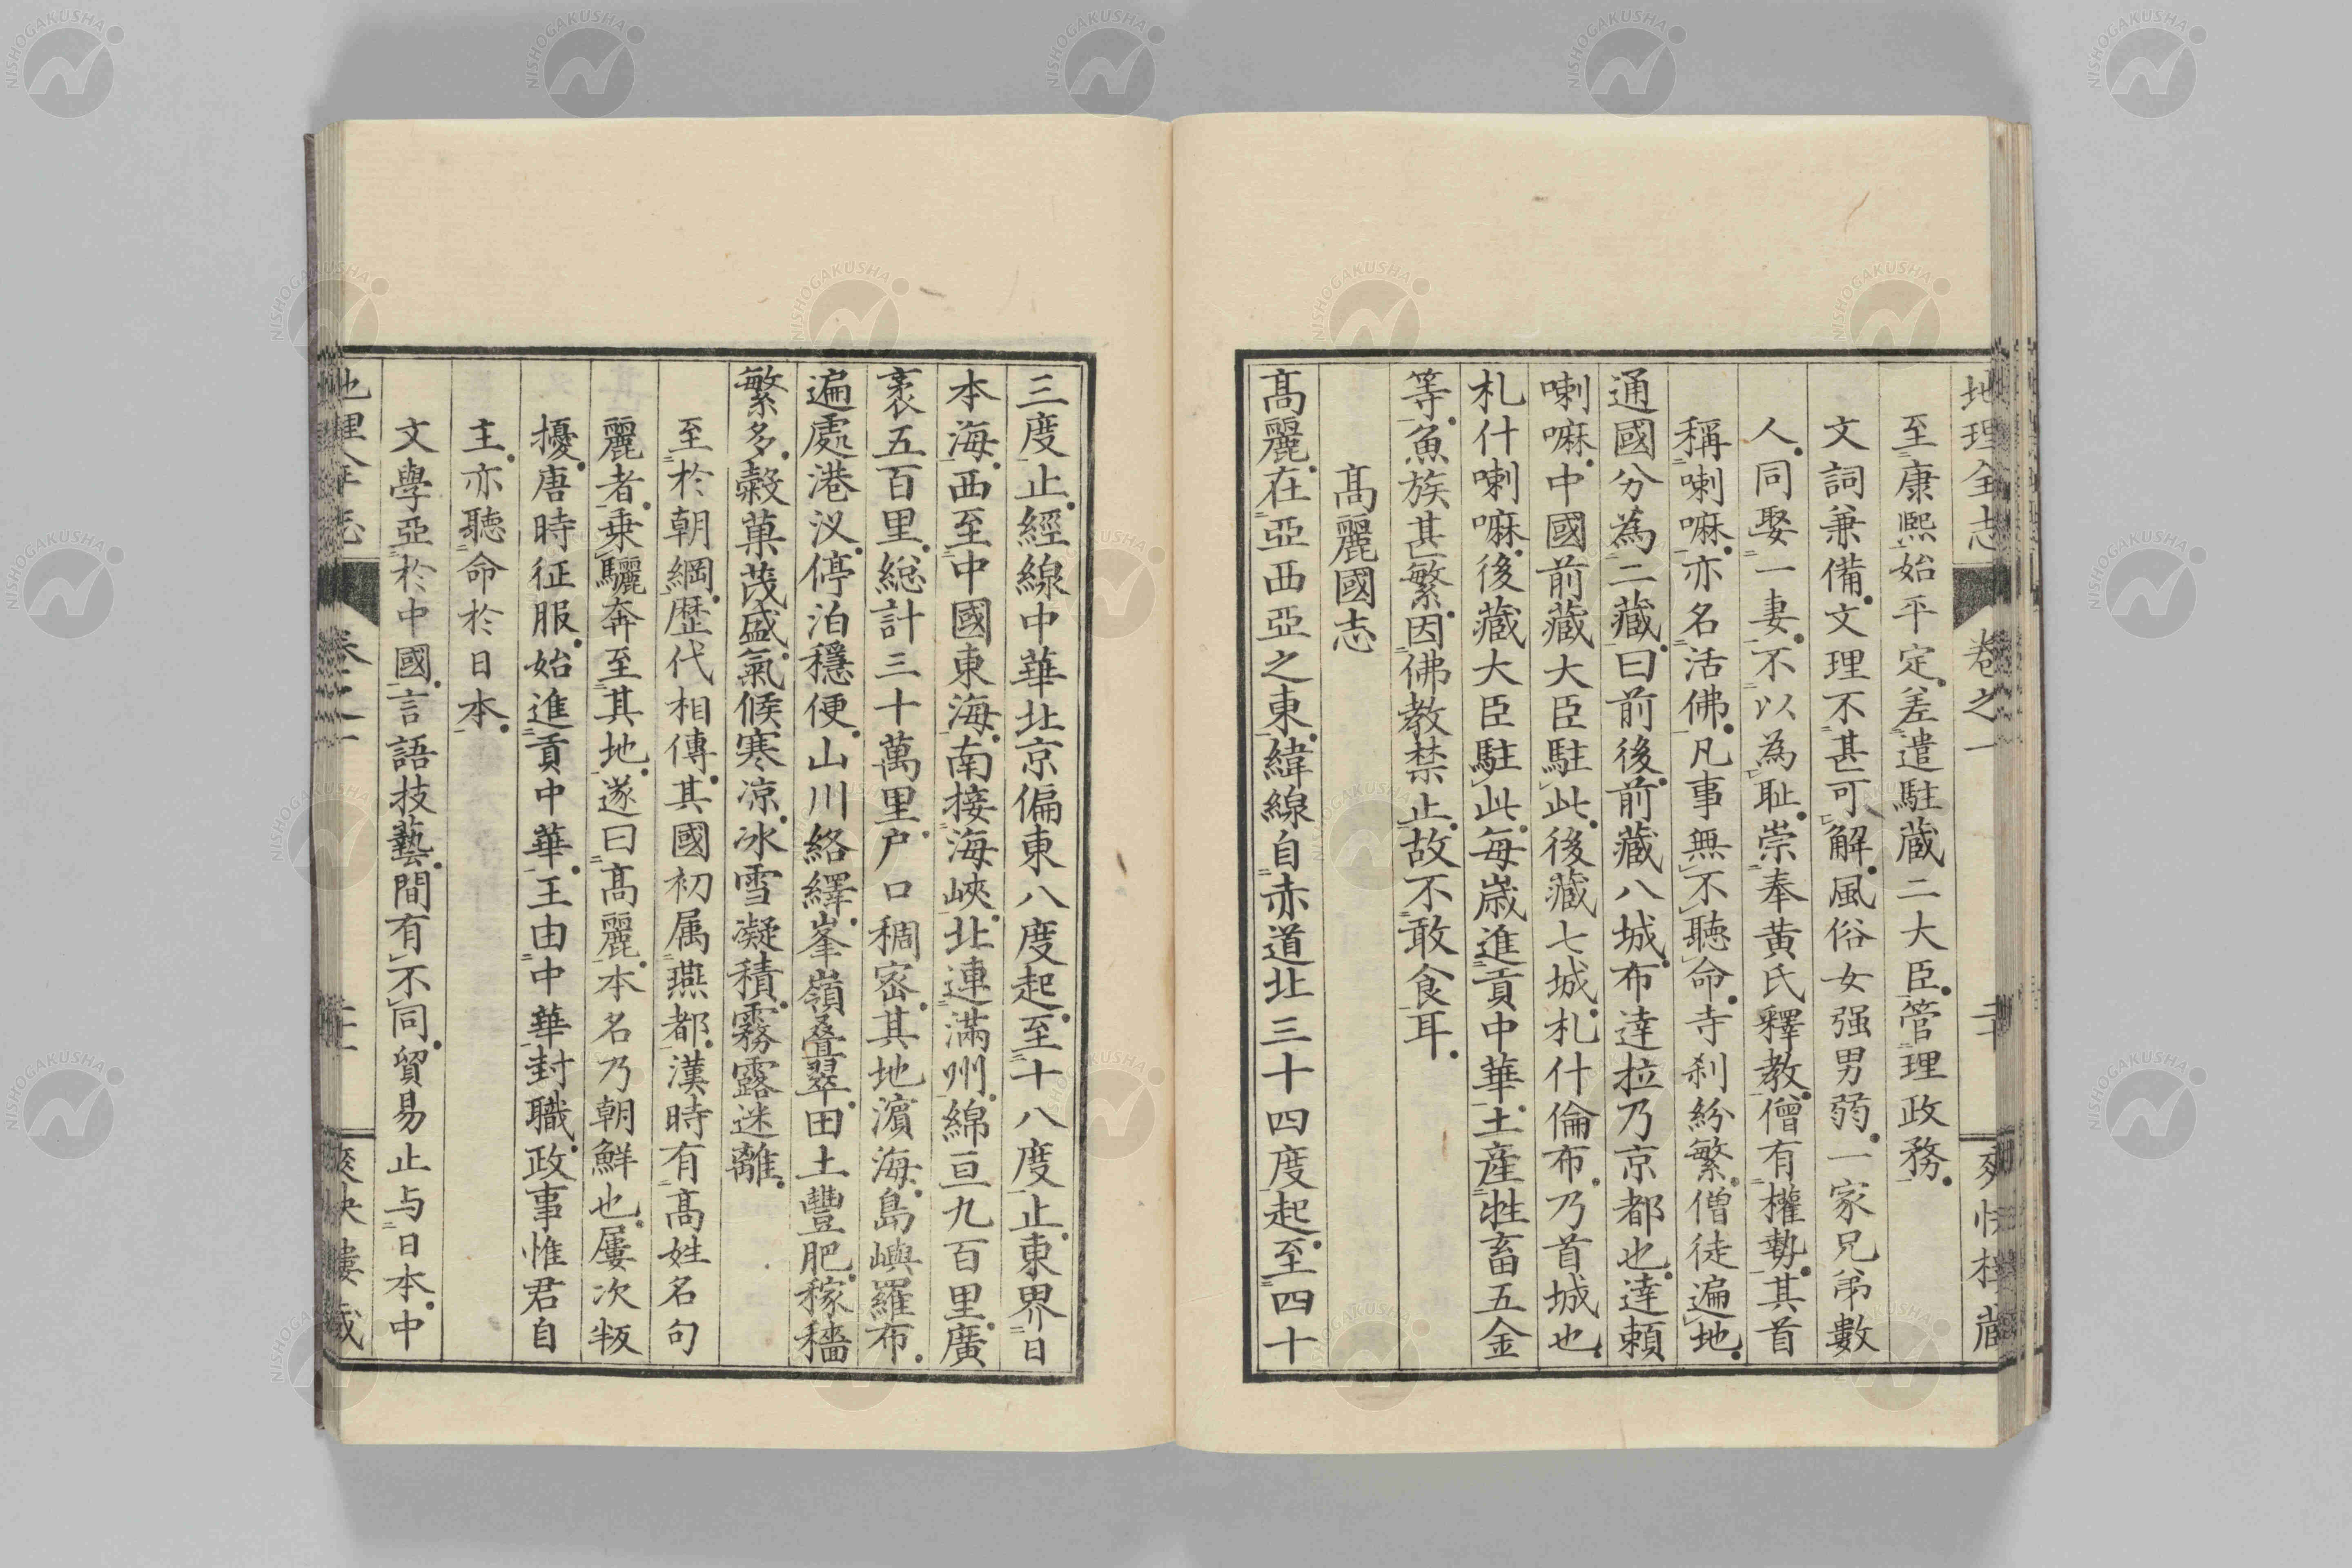 地理全志 卷之一 二十 爽快樓藏
至康熙始平定差遣駐藏二大臣管理政務
文詞兼備文理不甚可解風俗女强男弱一家兄弟數
人同娶一妻不以為耻崇奉黃氏釋教僧有權勢其首
稱喇嘛亦名活佛凡事無不聽命寺刹紛繁僧徒遍地
通國分為二藏曰前後前藏八城布達拉乃京都也達賴
喇嘛中國前藏大臣駐此後藏七城札什倫布乃首城也
札什喇嘛後藏大臣駐此每歲進貢中華土產牲畜五金
等魚族甚繁因佛教禁止故不敢食耳
高麗國志
高麗在亞西亞之東緯線自赤道北三十四度起至四十
三度止經線中華北京偏東八度起至十八度止東界日
本海西至中國東海南接海峽北連滿州綿亘九百里廣
袤五百里總計三十萬里户口稠密其地濱海島嶼羅布
遍處港汊停泊穩便山川絡繹峯嶺疊翠田土豐肥稼穡
繁多穀菓茂盛氣候寒凉冰雪凝積霧露迷離
至於朝綱歷代相傳其國初属燕都漢時有高姓名句
麗者乗驪奔至其地遂曰高麗本名乃朝鮮也屢次叛
擾唐時征服始進貢中華王由中華封職政事惟君自
主亦聽命於日本
文學亞於中國言語技藝間有不同貿易止与日本中
地理全志 卷之一 二十一 爽快樓藏
NISHOGAKUSHA
NISHOGAKUSHA
NISHOGAKUSHA
NISHOGAKUSHA
NISHOGAKUSHA